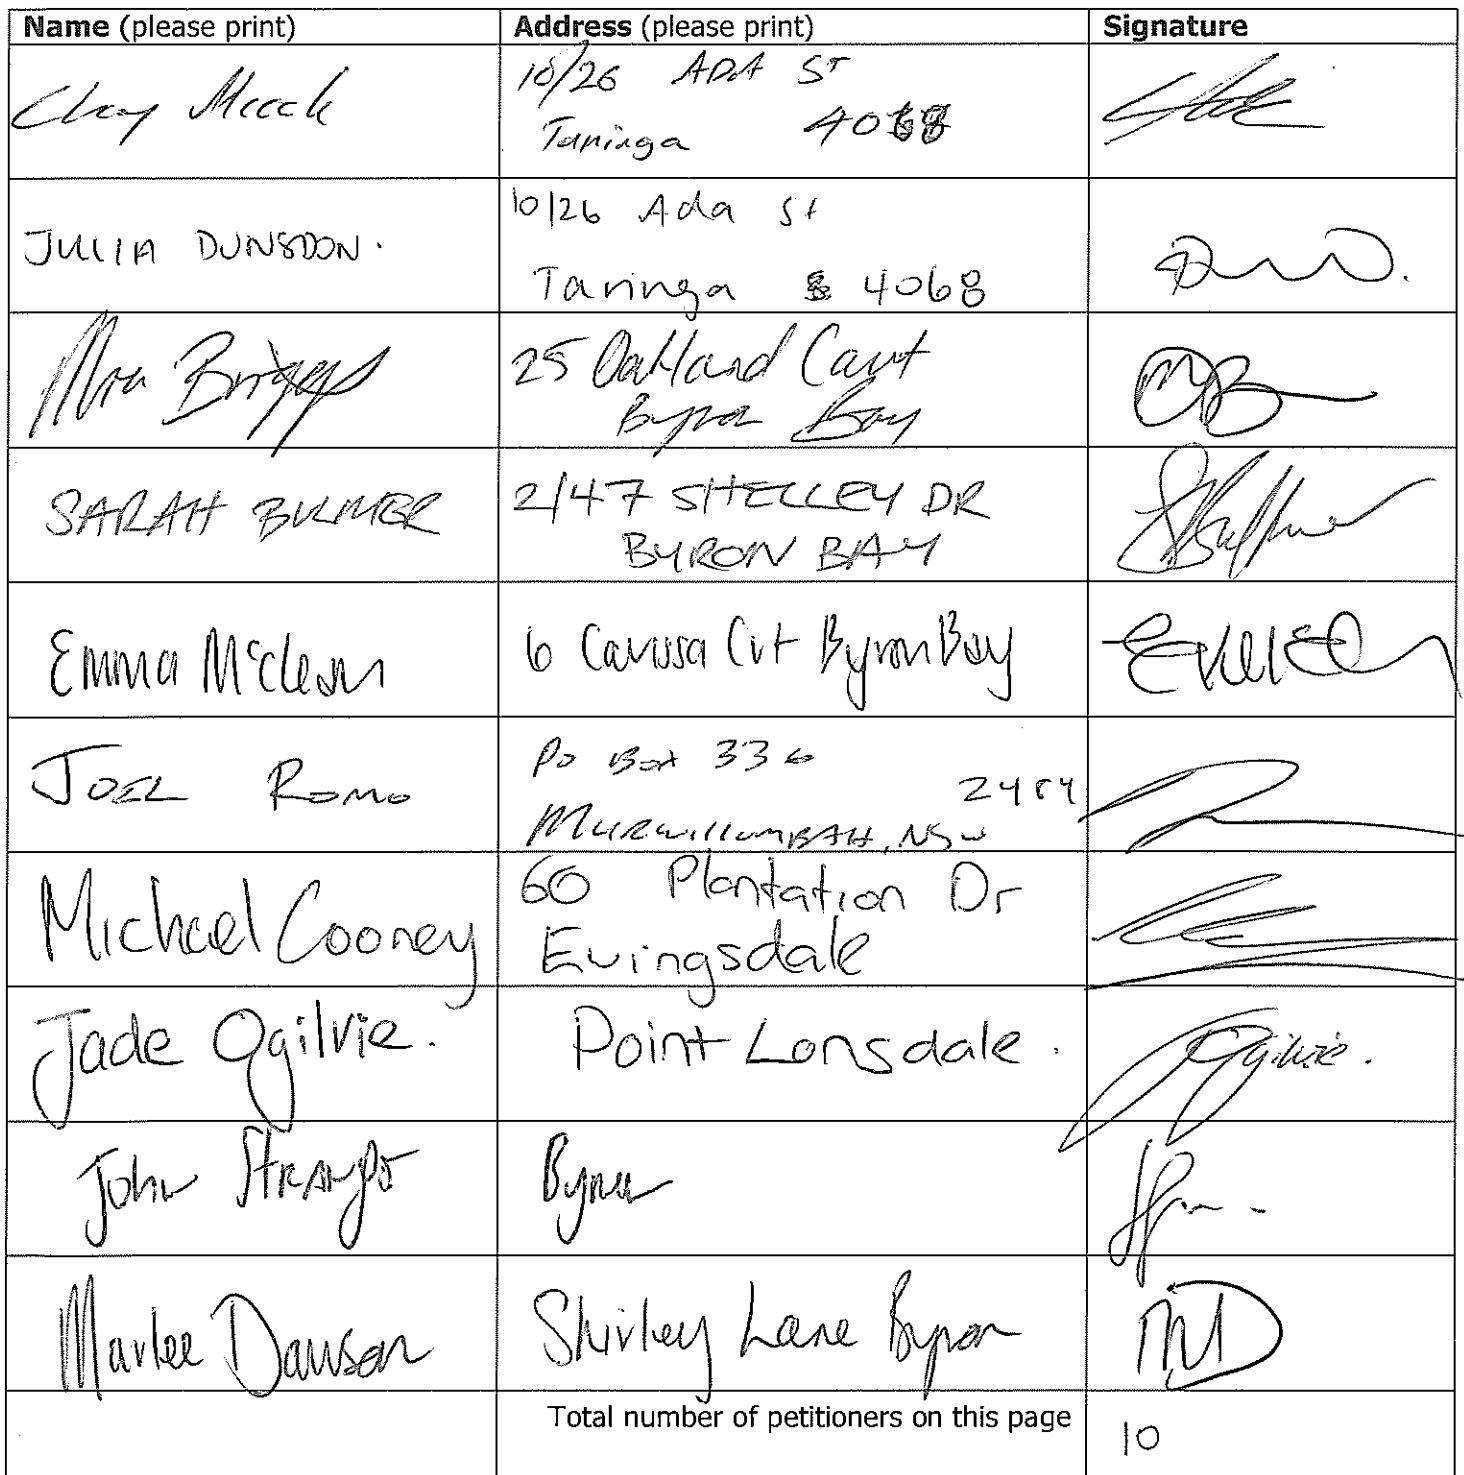 Name (please print) Address (please print) Signature
10/26 ADA ST
Clay
Taringa 4068
10/26 Ada St
JULIA DUNSDON.
Taringa 4068
Briggs 25 Oakland Court
Byron Bay
SARAH BULMER 2/47 SHELLEY DR
BYRON BAY
Emma McClean 6 Carissa Crt Byron Bay
PO Box 336
JOEL ROMO 2484
MURWILLUMBAH, NSW
Michael Cooney 60 Plantation Dr
Ewingsdale
Jade Ogilvie. Point Lonsdale. Ogilvie.
John Byron
Marlee Dawson Shirley Lane Byron MD
Total number of petitioners on this page 10